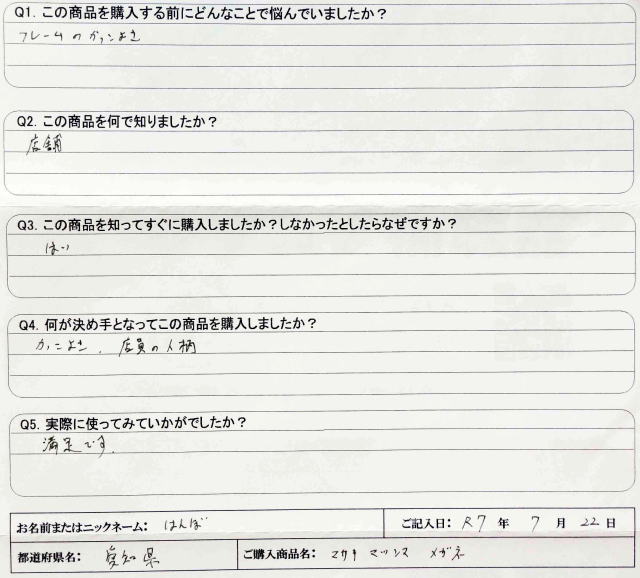 Q1. この商品を購入する前にどんなことで悩んでいましたか？
フレームのかっこよさ
Q2. この商品を何で知りましたか？
店舗
Q3. この商品を知ってすぐに購入しましたか？しなかったとしたらなぜですか？
はい
Q4. 何が決め手となってこの商品を購入しましたか？
かっこよさ、店員の人柄
Q5. 実際に使ってみていかがでしたか？
満足です。
お名前またはニックネーム： はんぼ ご記入日： R7 年 7 月 22 日
都道府県名： 愛知県 ご購入商品名： マサキ マツシマ メガネ